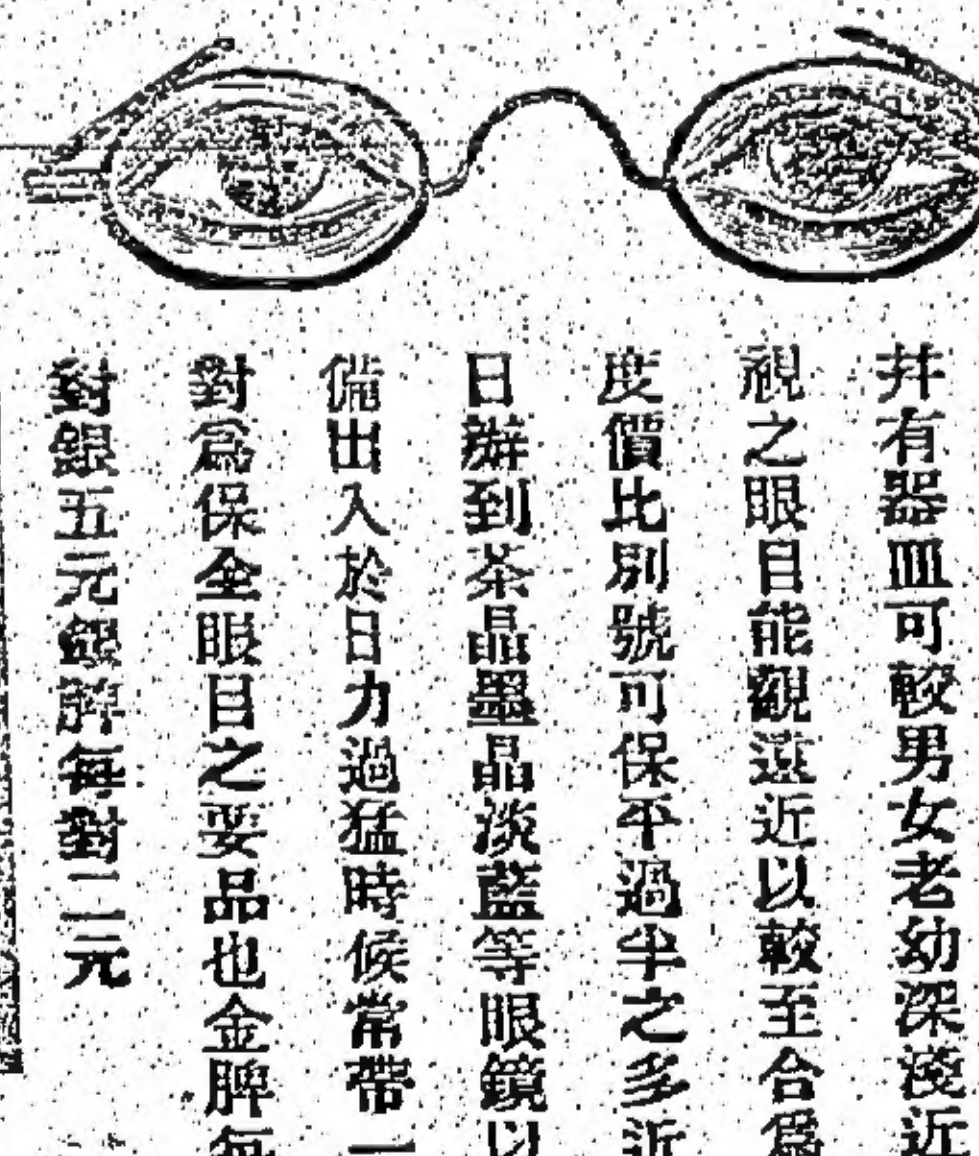 幷有器皿可較男女老幼深淺近
視之眼目能觀遠近以較至合爲
度價比別號可保平過半之多近
日辦到茶晶墨晶淡藍等眼鏡以
備出入於日力過猛時候常帶一
對爲保全眼目之要品也金脾每
對銀五元銀脾每對二元